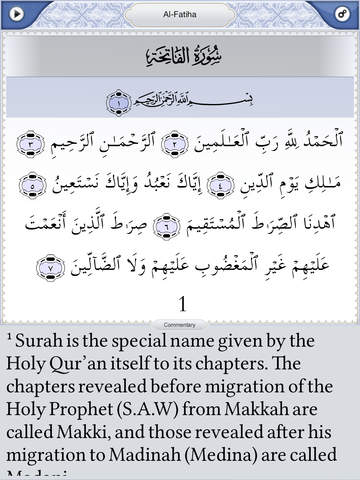 Al-Fatiha
سُورَةُ الفَاتِحَةِ
بِسْمِ ٱللَّهِ ٱلرَّحْمَـٰنِ ٱلرَّحِيمِ ١
ٱلْحَمْدُ لِلَّهِ رَبِّ ٱلْعَـٰلَمِينَ ٢ ٱلرَّحْمَـٰنِ ٱلرَّحِيمِ ٣
مَـٰلِكِ يَوْمِ ٱلدِّينِ ٤ إِيَّاكَ نَعْبُدُ وَإِيَّاكَ نَسْتَعِينُ ٥
ٱهْدِنَا ٱلصِّرَٰطَ ٱلْمُسْتَقِيمَ ٦ صِرَٰطَ ٱلَّذِينَ أَنْعَمْتَ
عَلَيْهِمْ غَيْرِ ٱلْمَغْضُوبِ عَلَيْهِمْ وَلَا ٱلضَّآلِّينَ ٧
1
Commentary
¹ Surah is the special name given by the
Holy Qur'an itself to its chapters. The
chapters revealed before migration of the
Holy Prophet (S.A.W) from Makkah are
called Makki, and those revealed after his
migration to Madinah (Medina) are called
Madani